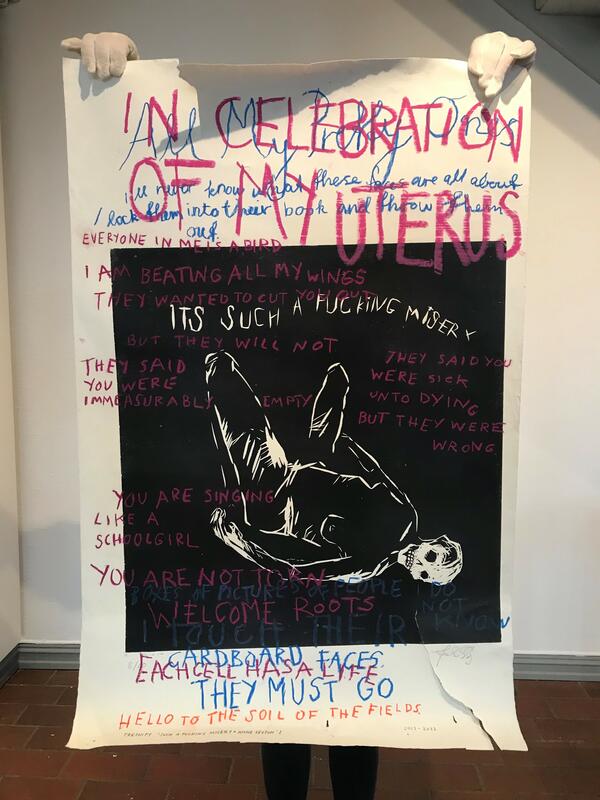 IN CELEBRATION
All My Pretty Ones
OF MY
UTERUS
i'll never know what these faces are all about
I lock them into their book and throw them
out.
EVERYONE IN ME IS A BIRD
I AM BEATING ALL MY WINGS
THEY WANTED TO CUT YOU OUT
ITS SUCH A FUCKING MISERY
BUT THEY WILL NOT
THEY SAID
YOU WERE
IMMEASURABLY EMPTY
THEY SAID YOU
WERE SICK
UNTO DYING
BUT THEY WERE
WRONG.
YOU ARE SINGING
LIKE A
SCHOOLGIRL
YOU ARE NOT TORN
BOXES OF PICTURES OF PEOPLE I DO
NOT
KNOW
WELCOME ROOTS
I TOUCH THEIR
CARDBOARD FACES
EACH CELL HAS A LIFE
THEY MUST GO
HELLO TO THE SOIL OF THE FIELDS
"SUCH A FUCKING MISERY + ANNE SEXTON"